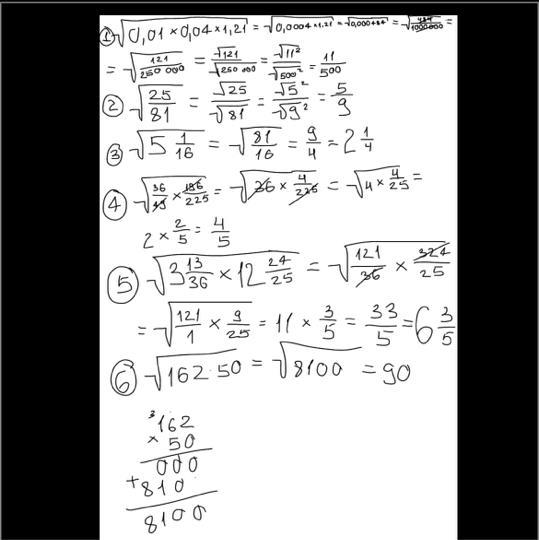 ① √0,01 × 0,04 × 1,21 = √0,0004 × 1,21 = √0,000484 = √484/1000000 =
= √121/250 000 = √121/√250 000 = √11²/√500² = 11/500
② √25/81 = √25/√81 = √5²/√9² = 5/9
③ √5 1/16 = √81/16 = 9/4 = 2 1/4
④ = √36 × 4/225 = √4 × 4/25 =
2 × 2/5 = 4/5
⑤ √3 13/36 × 12 24/25 = √121/36 × 324/25
= √121/1 × 9/25 = 11 × 3/5 = 33/5 = 6 3/5
⑥ √162·50 = √8100 = 90
3
162
× 50
000
+ 810
8100